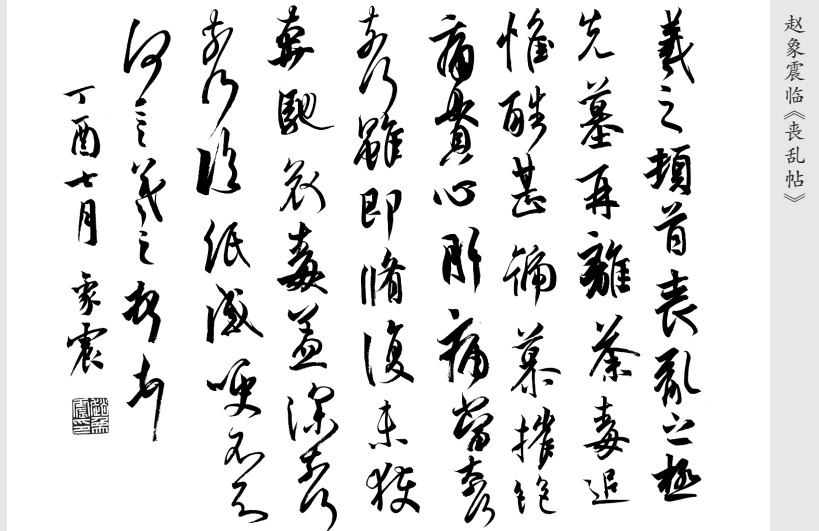 赵象震临《丧乱帖》
羲之頓首喪亂之極
先墓再離荼毒追
惟酷甚號慕摧絕
痛貫心肝痛當奈何
奈何雖即脩復未獲
奔馳哀毒益深奈何
奈何臨紙感哽不知
何言羲之頓首
丁酉七月 象震